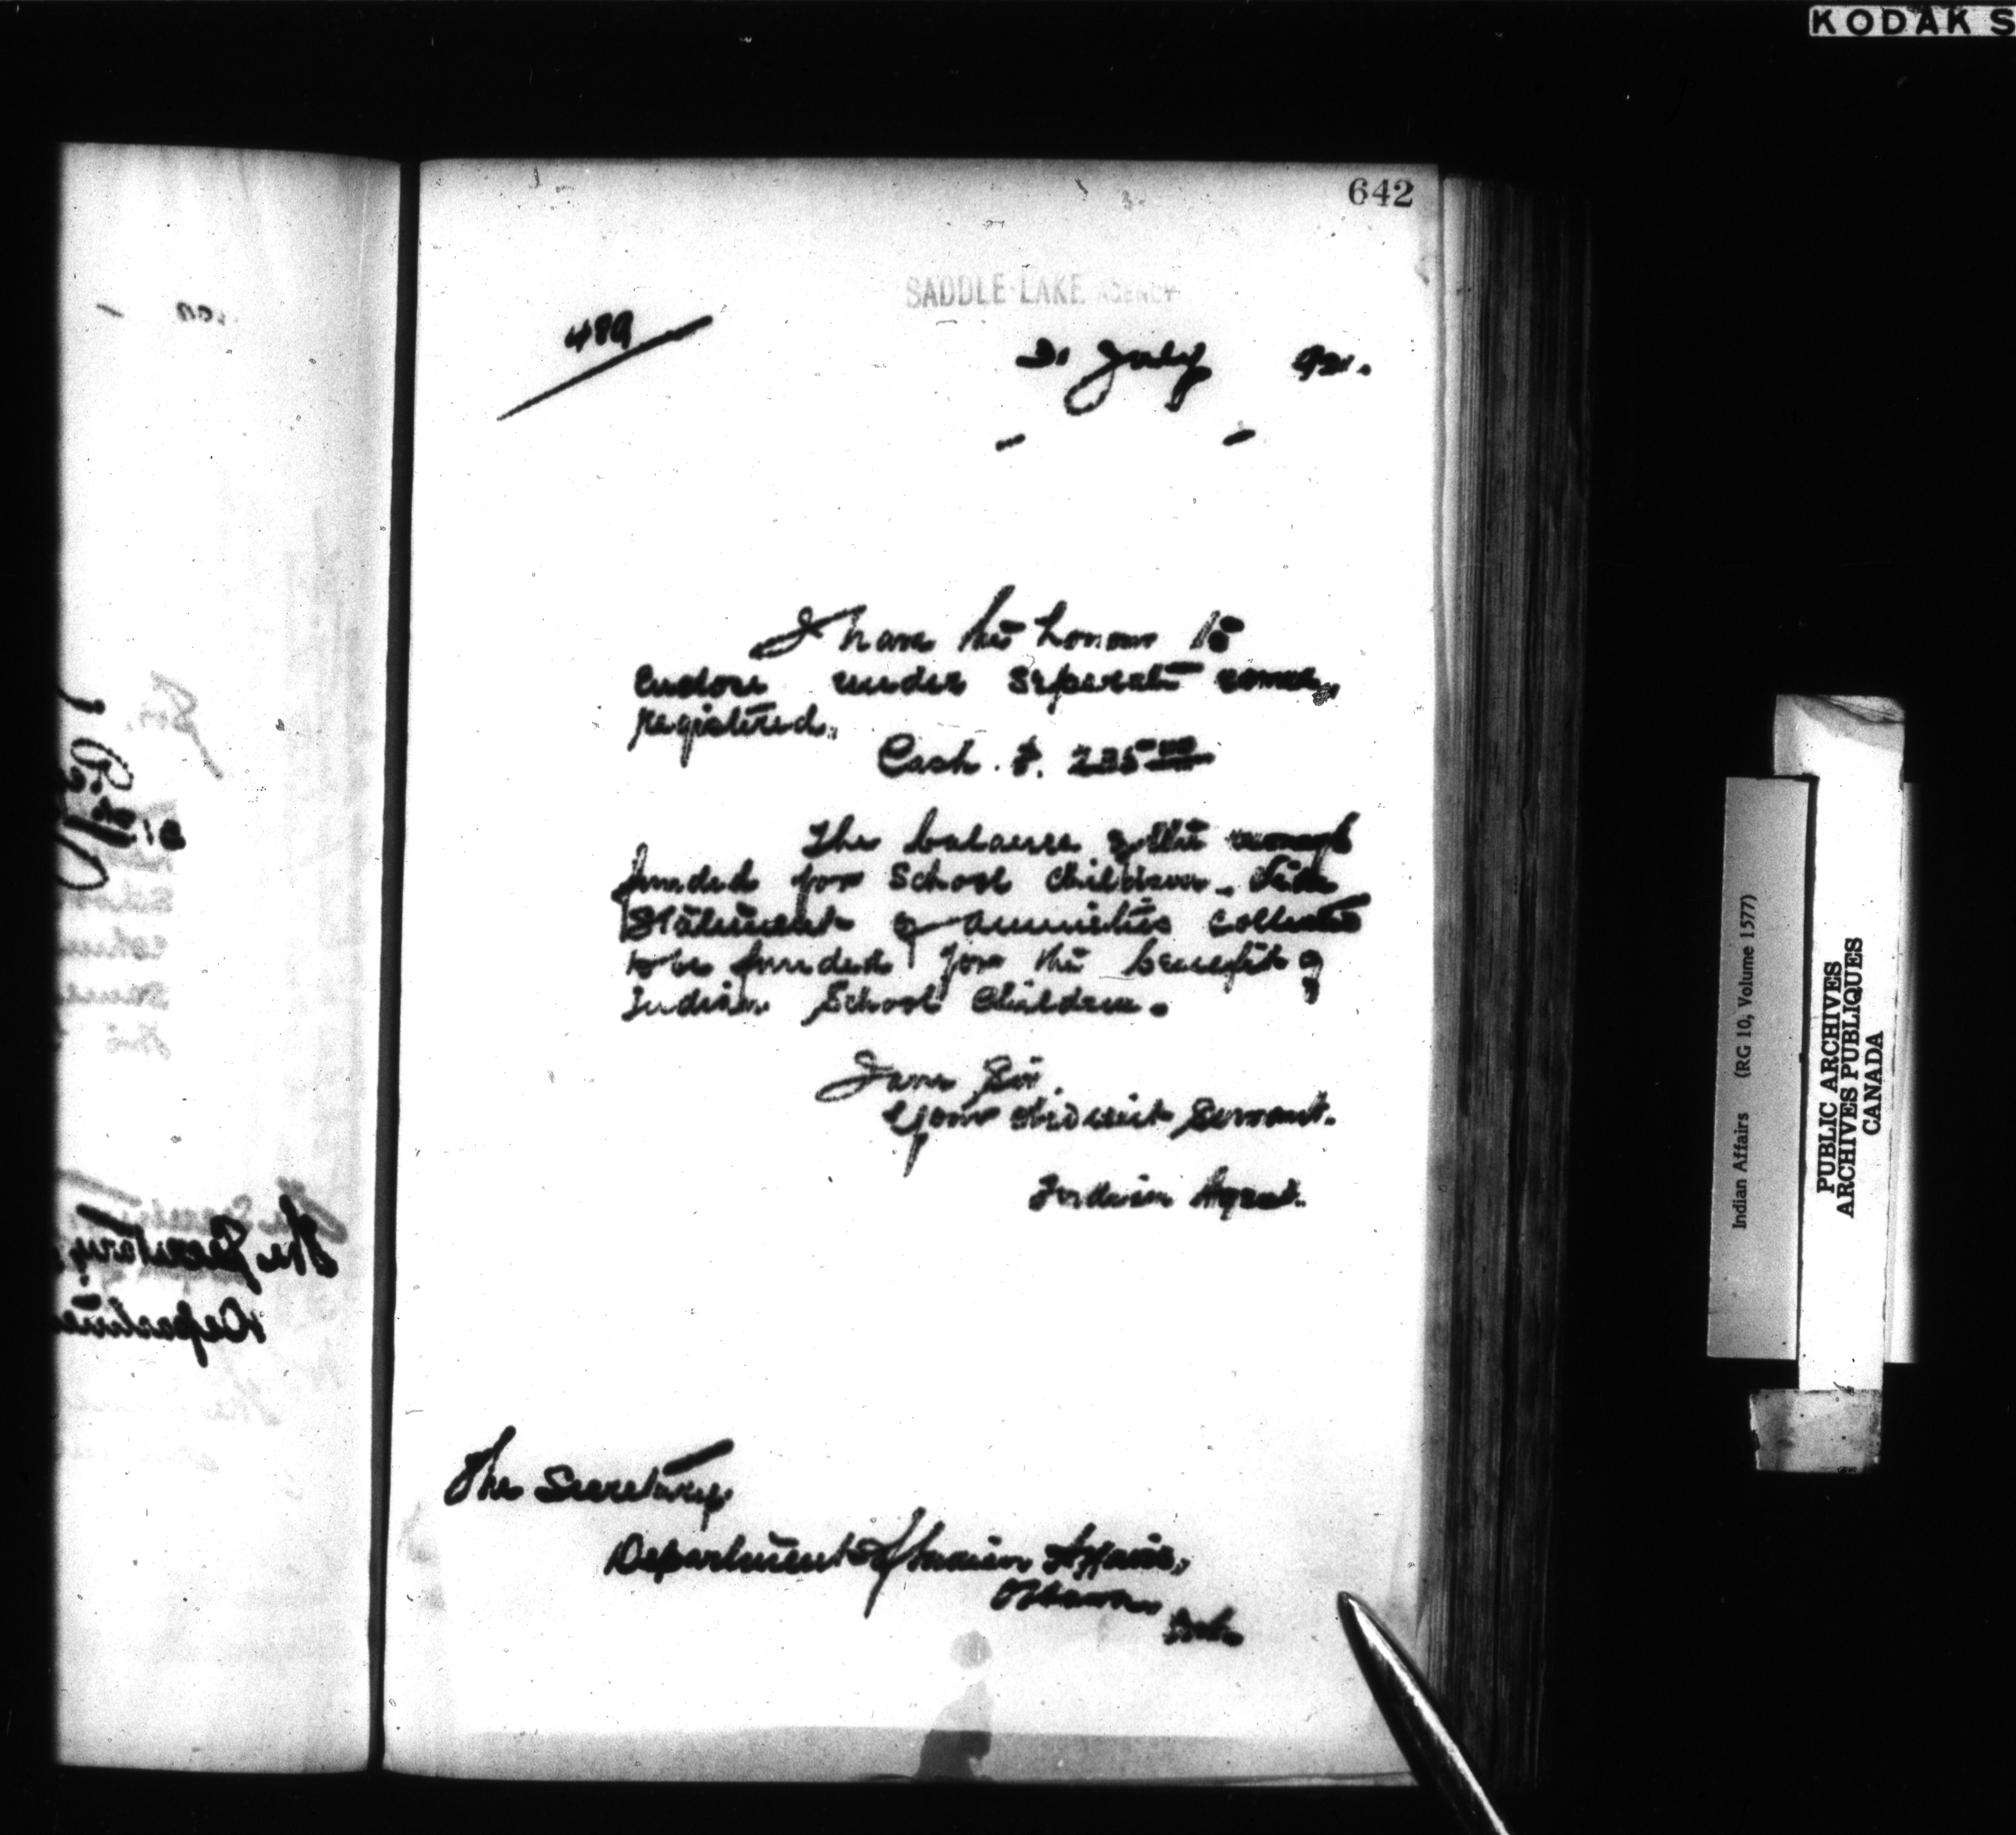 KODAK S
642
SADDLE LAKE AGENCY
489
31 July
I have the honour to
Enclose under separate cover,
registered.
Cash. $. 235 00
The balance of the
funded for School Children. Vide
Statement of annuities Collected
to be funded for the benefit of
Indian School Children.
I am Sir,
Your Obedient Servant.
Indian Agent.
The Secretary
Department of Indian Affairs,
Ottawa
Ont.
Indian Affairs (RG 10, Volume 1577)
PUBLIC ARCHIVES
ARCHIVES PUBLIQUES
CANADA